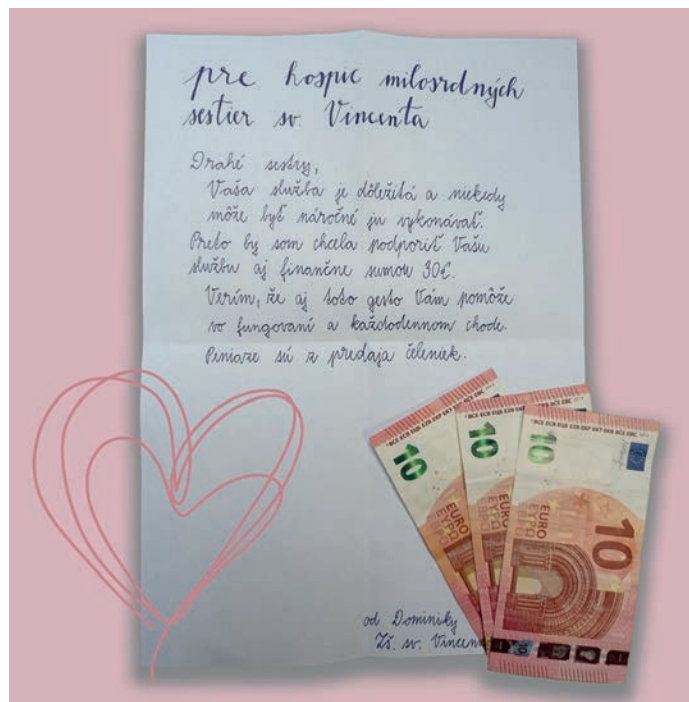 pre hospic milosrdných
sestier sv. Vincenta
Drahé sestry,
Vaša služba je dôležitá a niekedy
môže byť náročné ju vykonávať.
Preto by som chcela podporiť Vašu
službu aj finančne sumou 30€.
Verím, že aj toto gesto Vám pomôže
vo fungovaní a každodennom chode.
Peniaze sú z predaja čeleniek.
10
10
10
EURO
ΕΥΡΩ
EURO
ΕΥΡΩ
EURO
ΕΥΡΩ
10
od Dominiky
ZŠ. sv. Vincen